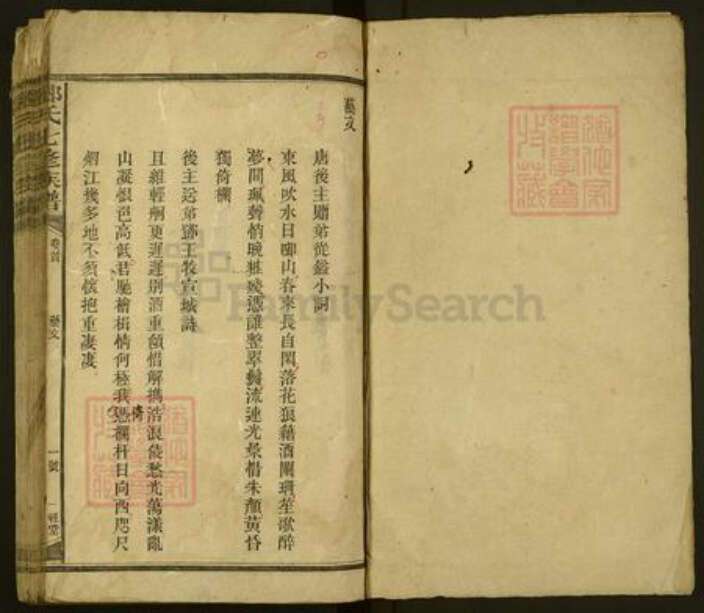 藝文
唐後主贈弟從鎰小詞
東風吹水日啣山春來長自閒落花狼藉酒闌珊笙歌醉
夢間珮聲悄晚粧殘憑誰整翠鬟流連光景惜朱顏黃昏
獨倚欄
後主送弟鄧王牧宣城詩
且維輕舸更遲遲別酒重傾惜解攜浩浪侵愁光蕩漾亂
山凝恨色高低君馳檜楫情何極我憑欄杆日向西咫尺
倚
烟江幾多地不須懷抱重凄凄
氏七修族譜
卷首
藝文
一號
猶他家
譜學會
收藏
FamilySearch